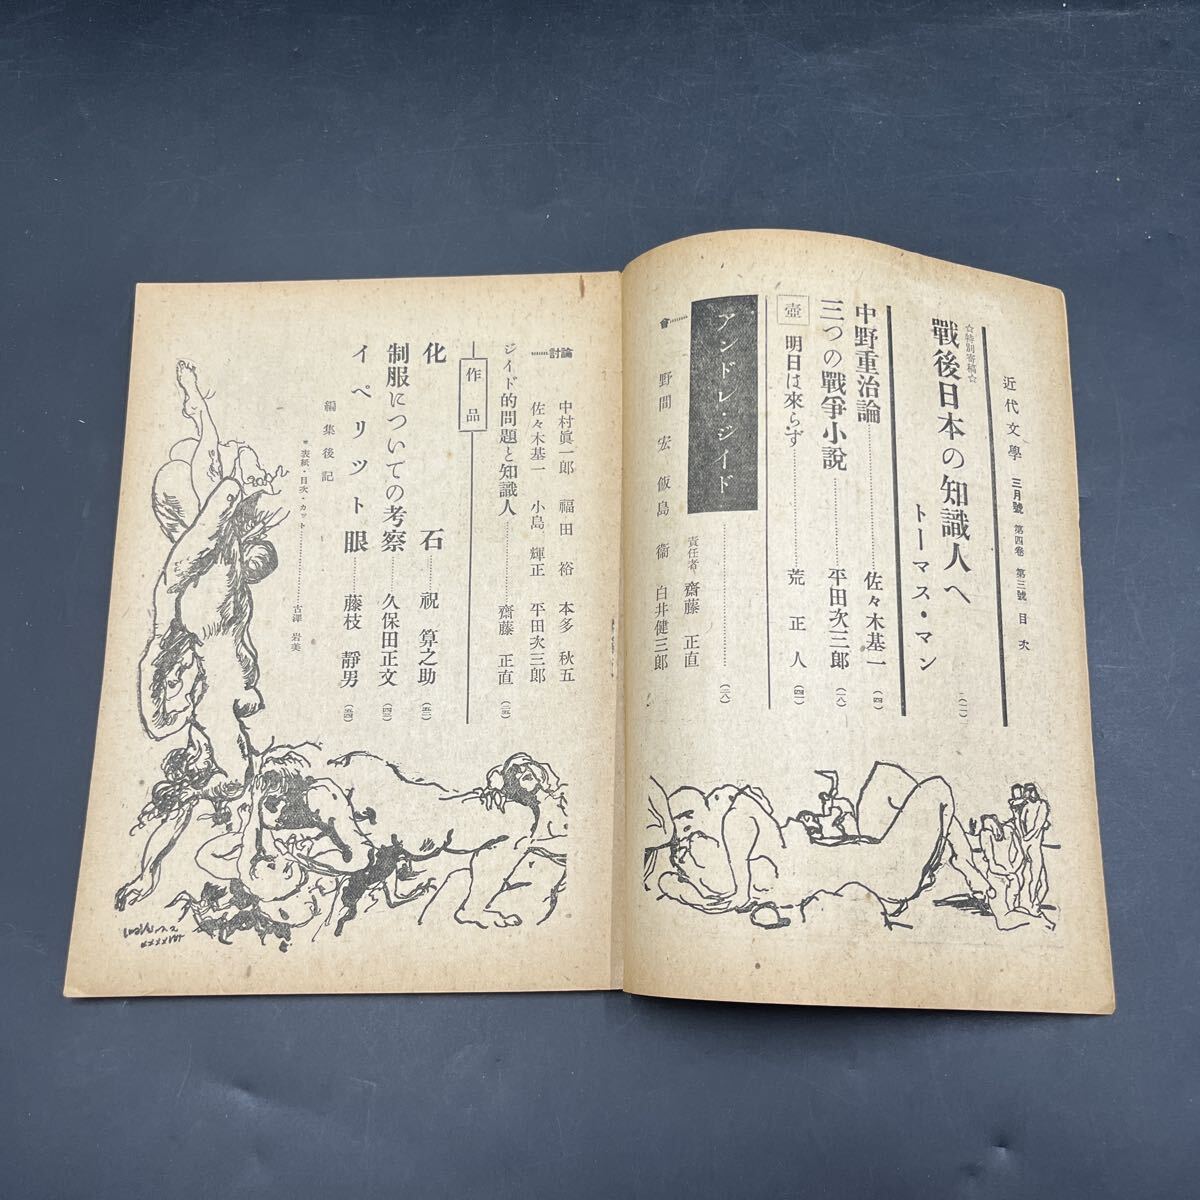 近代文學 三月號 第四卷 第三號 目次
☆特別寄稿☆
戰後日本の知識人へ
トーマス・マン
(二)
中野重治論
佐々木基一
(四)
三つの戰爭小説
平田次三郎
(一八)
壺
明日は來らず
荒正人
(四一)
アンドレ・ジイド
(二八)
責任者 齋藤正直
會
野間宏 飯島衞 白井健三郎
討論
中村眞一郎 福田裕 本多秋五
佐々木基一 小島輝正 平田次三郎
ジイド的問題と知識人
齋藤正直
(三五)
作品
化石
祝算之助
(五二)
制服についての考察
久保田正文
(四三)
イペリット眼
藤枝靜男
(五四)
編集後記
表紙・目次・カット
古澤岩美